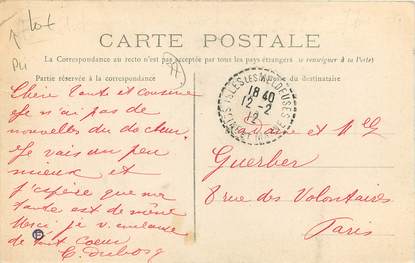 lot
P4
CARTE POSTALE
La Correspondance au recto n'est pas acceptée par tous les pays étrangers (se renseigner à la Poste)
Partie réservée à la correspondance
du destinataire
Chère Tante et cousine
Je n'ai pas de
nouvelles du docteur.
Je vais un peu
mieux et
j'espère que ma
tante est de même
Merci, je v. embrasse
de tout coeur
C. Dubosq
ISLES-LES-MELDEUSES
18 40
12-2
12
SEINE-ET-MARNE
Madame et Mlle
Guerber
8 rue des Volontaires
Paris